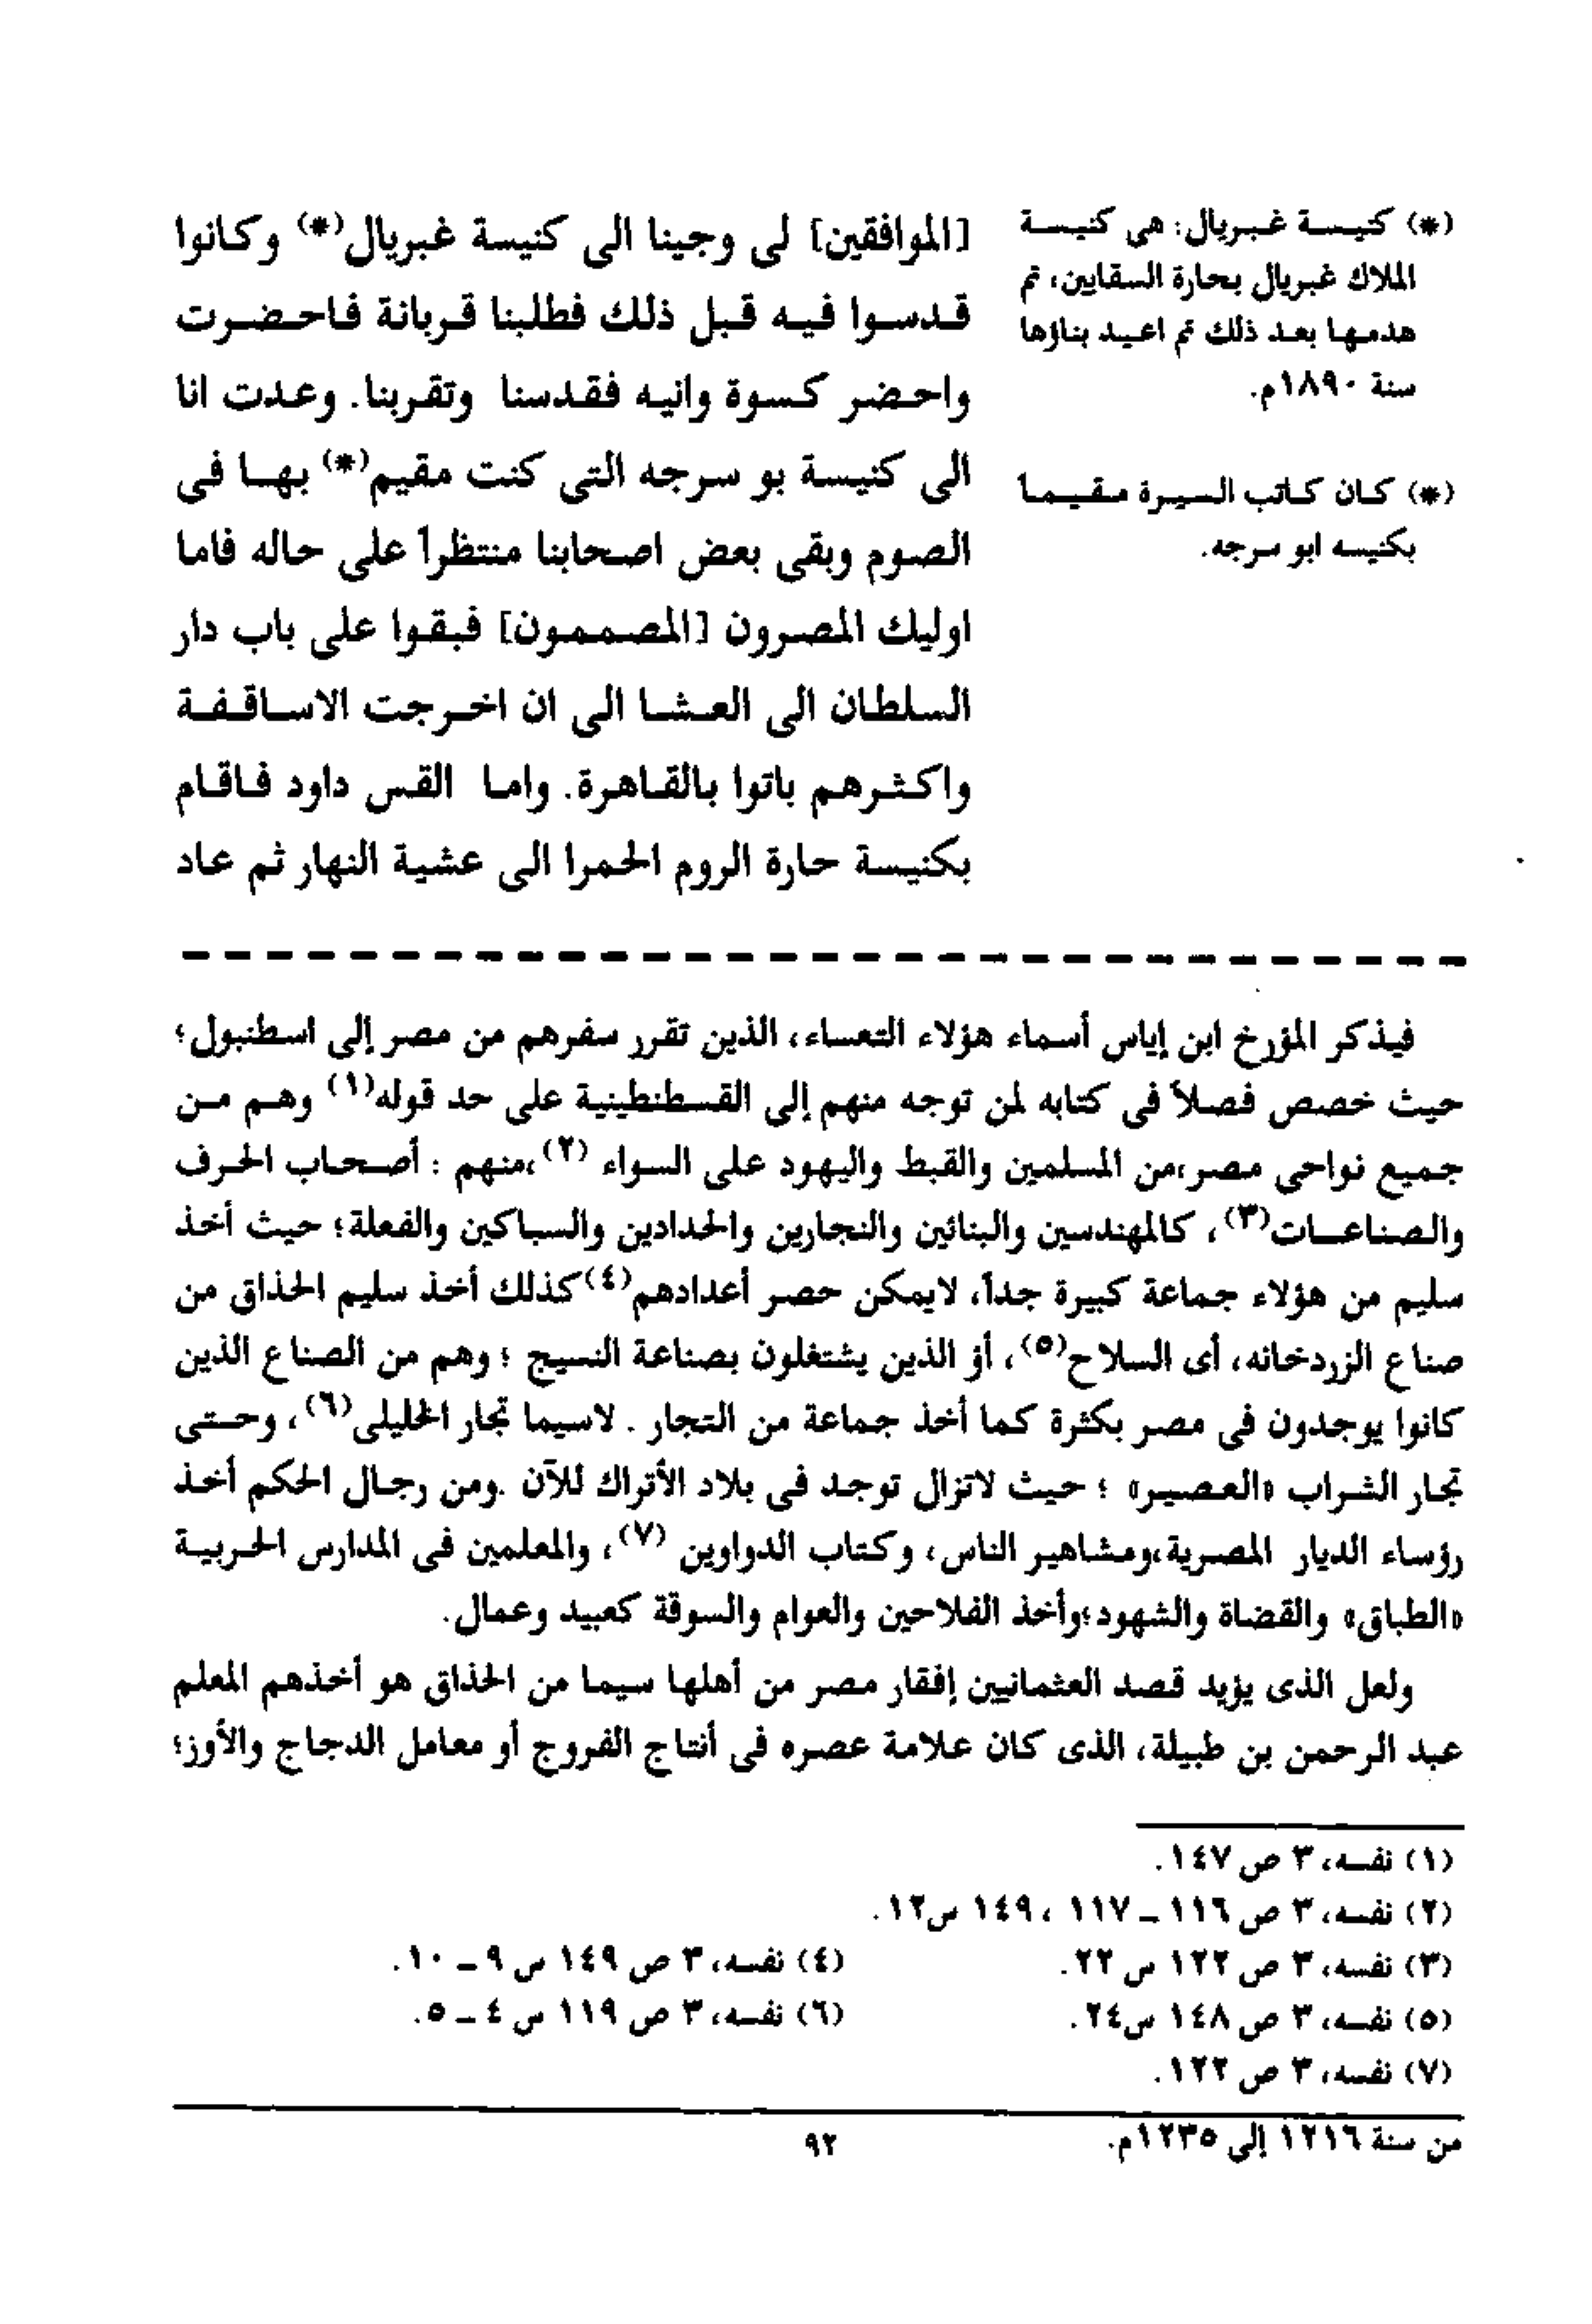 [الموافقين] لى وجينا الى كنيسة غبريال(*) وكانوا
قدسوا فيه قبل ذلك فطلبنا قربانة فاحضرت
واحضر كسوة وانيه فقدسنا وتقربنا. وعدت انا
الى كنيسة بو سرجه التى كنت مقيم(*) بها فى
الصوم وبقى بعض اصحابنا منتظراً على حاله فاما
اوليك المصرون [المصممون] فبقوا على باب دار
السلطان الى العشا الى ان اخرجت الاساقفة
واكثرهم باتوا بالقاهرة. واما القس داود فاقام
بكنيسة حارة الروم الحمرا الى عشية النهار ثم عاد
(*) كنيسة غبريال: هى كنيسة
الملاك غبريال بحارة السقايين، تم
هدمها بعد ذلك تم اعيد بناؤها
سنة ١٨٩٠م.
(*) كان كاتب السيرة مقيما
بكنيسه ابو سرجه.
فيذكر المؤرخ ابن إياس أسماء هؤلاء التعساء، الذين تقرر سفرهم من مصر إلى اسطنبول؛
حيث خصص فصلاً فى كتابه لمن توجه منهم إلى القسطنطينية على حد قوله(١) وهم من
جميع نواحى مصر،من المسلمين والقبط واليهود على السواء (٢)،منهم : أصحاب الحرف
والصناعات(٣)، كالمهندسين والبنائين والنجارين والحدادين والسباكين والفعلة؛ حيث أخذ
سليم من هؤلاء جماعة كبيرة جداً، لايمكن حصر أعدادهم(٤)كذلك أخذ سليم الحذاق من
صناع الزردخانه، أى السلاح(٥)، أؤ الذين يشتغلون بصناعة النسيج ؛ وهم من الصناع الذين
كانوا يوجدون فى مصر بكثرة كما أخذ جماعة من التجار . لاسيما تجار الخليلى(٦)، وحتى
تجار الشراب «العصير» ؛ حيث لاتزال توجد فى بلاد الأتراك للآن .ومن رجال الحكم أخذ
رؤساء الديار المصرية،ومشاهير الناس، وكتاب الدواوين (٧)، والمعلمين فى المدارس الحربية
«الطباق» والقضاة والشهود؛وأخذ الفلاحين والعوام والسوقة كعبيد وعمال.
ولعل الذى يؤيد قصد العثمانيين إفقار مصر من أهلها سيما من الحذاق هو أخذهم المعلم
عبد الرحمن بن طبيلة، الذى كان علامة عصره فى أنتاج الفروج أو معامل الدجاج والأوز؛
(١) نفسه، ٣ ص ١٤٧.
(٢) نفسه، ٣ ص ١١٦ – ١١٧ ، ١٤٩ س١٢.
(٣) نفسه، ٣ ص ١٢٢ س ٢٢. (٤) نفسه، ٣ ص ١٤٩ س ٩ – ١٠.
(٥) نفسه، ٣ ص ١٤٨ س٢٤. (٦) نفسه، ٣ ص ١١٩ س ٤ – ٥.
(٧) نفسه، ٣ ص ١٢٢.
من سنة ١٢١٦ إلى ١٢٣٥م. ٩٢